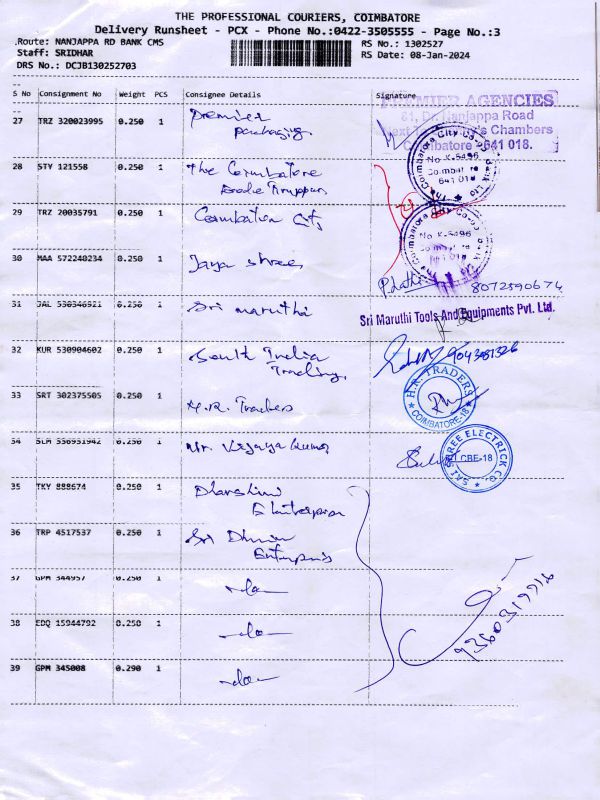 THE PROFESSIONAL COURIERS, COIMBATORE
Delivery Runsheet - PCX - Phone No.:0422-3505555 - Page No.:3
Route: NANJAPPA RD BANK CMS
RS No.: 1302527
Staff: SRIDHAR
RS Date: 08-Jan-2024
DRS No.: DCJB130252703
S No Consignment No Weight PCS Consignee Details Signature
27 TRZ 320023995 0.250 1 Premier
packaging
PREMIER AGENCIES
81, Dr. Nanjappa Road
Chambers
Coimbatore - 641 018.
28 STY 121558 0.250 1 The Coimbatore
No K-5496
Coimbatore
641 018
29 TRZ 20035791 0.250 1 Coimbatore City
No K-5496
Coimbatore
641 018
30 MAA 572240234 0.250 1 Jaya Shree
8072590674
31 JAL 530346921 0.250 1 Sri maruthi
Sri Maruthi Tools And Equipments Pvt. Ltd.
32 KUR 530904602 0.250 1 South India
Trading
33 SRT 302375505 0.250 1 H.R. Traders
H.R. TRADERS
COIMBATORE-18
34 SLM 530931942 0.250 1 Mr. Vijaya Kumar
SAI SHREE ELECTRICK CO.
CBE-18
35 TKY 888674 0.250 1 Dharshini
Enterprises
36 TRP 4517537 0.250 1 Sri Dhurai
Enterprises
37 GPM 344957 0.250 1 -do-
38 EDQ 15944792 0.250 1 -do-
9360319916
39 GPM 345008 0.290 1 -do-